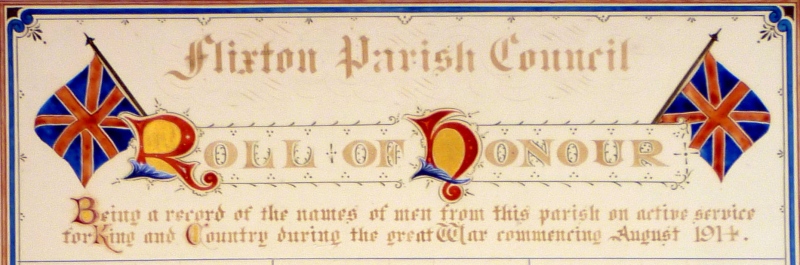 Flixton Parish Council
ROLL OF HONOUR
Being a record of the names of men from this parish on active service
for King and Country during the great War commencing August 1914.